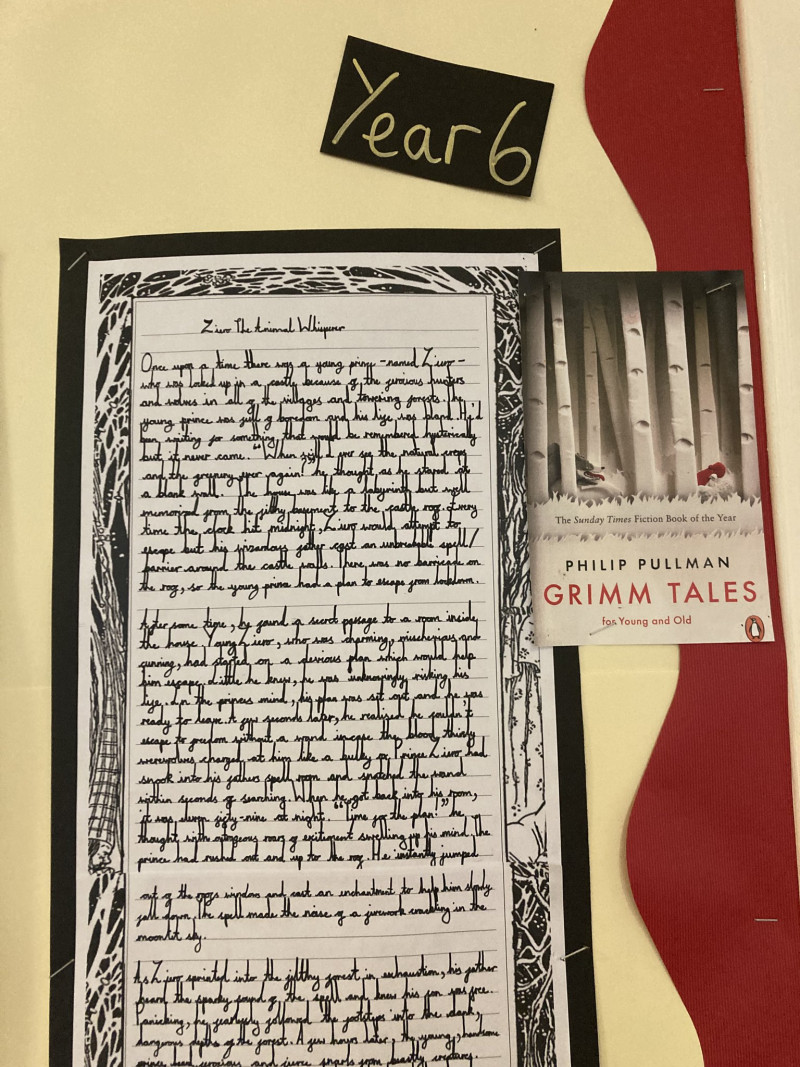 Year 6
Ziero The Animal Whisperer
Once upon a time there was a young prince -named Ziero-
who was locked up in a castle because of the ferocious hunters
and wolves in all of the villages and towering forests. The
young prince was full of boredom and his life was bland. He'd
been waiting for something that would be remembered hysterically
but it never came. "When will I ever see the natural crops
and the greenery ever again" he thought as he stared at
a blank wall. The house was like a labyrinth but well
memorized from the filthy basement to the castle roof. Every
time the clock hit midnight, Ziero would attempt to
escape but his infamous father cast an unbreakable spell/
barrier around the castle walls. There was no barricade on
the roof, so the young prince had a plan to escape from lockdown.
After some time, he found a secret passage to a room inside
the house. Young Ziero, who was charming, mischevious and
cunning, had started on a devious plan which would help
him escape. Little he knew, he was unknowingly risking his
life. In the princes mind, his plan was sit out and he was
ready to leave. A few seconds later, he realised he couldn't
escape to freedom without a wand incase the bloody thirsty
werewolves charged at him like a bully. Prince Ziero had
snook into his fathers spell room and snatched the wand
within seconds of searching. When he got back into his room,
it was eleven fifty-nine at night. "Time for the plan!" he
thought with outrageous roars of excitement swelling up his mind. The
prince had rushed out and up to the roof. He instantly jumped
out of the roofs window and cast an enchantment to help him slowly
fall down. The spell made the noise of a firework crackling in the
moonlit sky.
As Ziero sprinted into the filthy forest in exhaustion, his father
heard the sparky sound of the spell and knew his son was free.
Panicking, he fearlessly followed the footsteps into the dark,
dangerous depths of the forest. A few hours later, the young, handsome
prince heard ferocious and fierce snarls from beastly creatures.
The Sunday Times Fiction Book of the Year
PHILIP PULLMAN
GRIMM TALES
for Young and Old